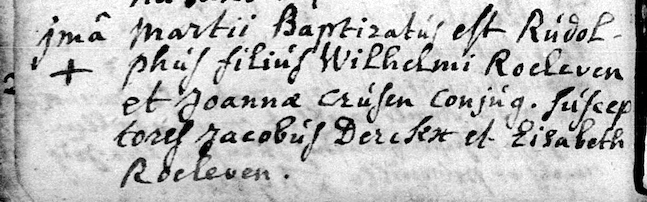 jmâ Martii Baptizatús est Rúdol-
+ phús filiús Wilhelmi Roeleven
et Joannæ Crúsen Conjúg. súscep
tores Jacobús Derckx et Elsabeth
Roeleven.